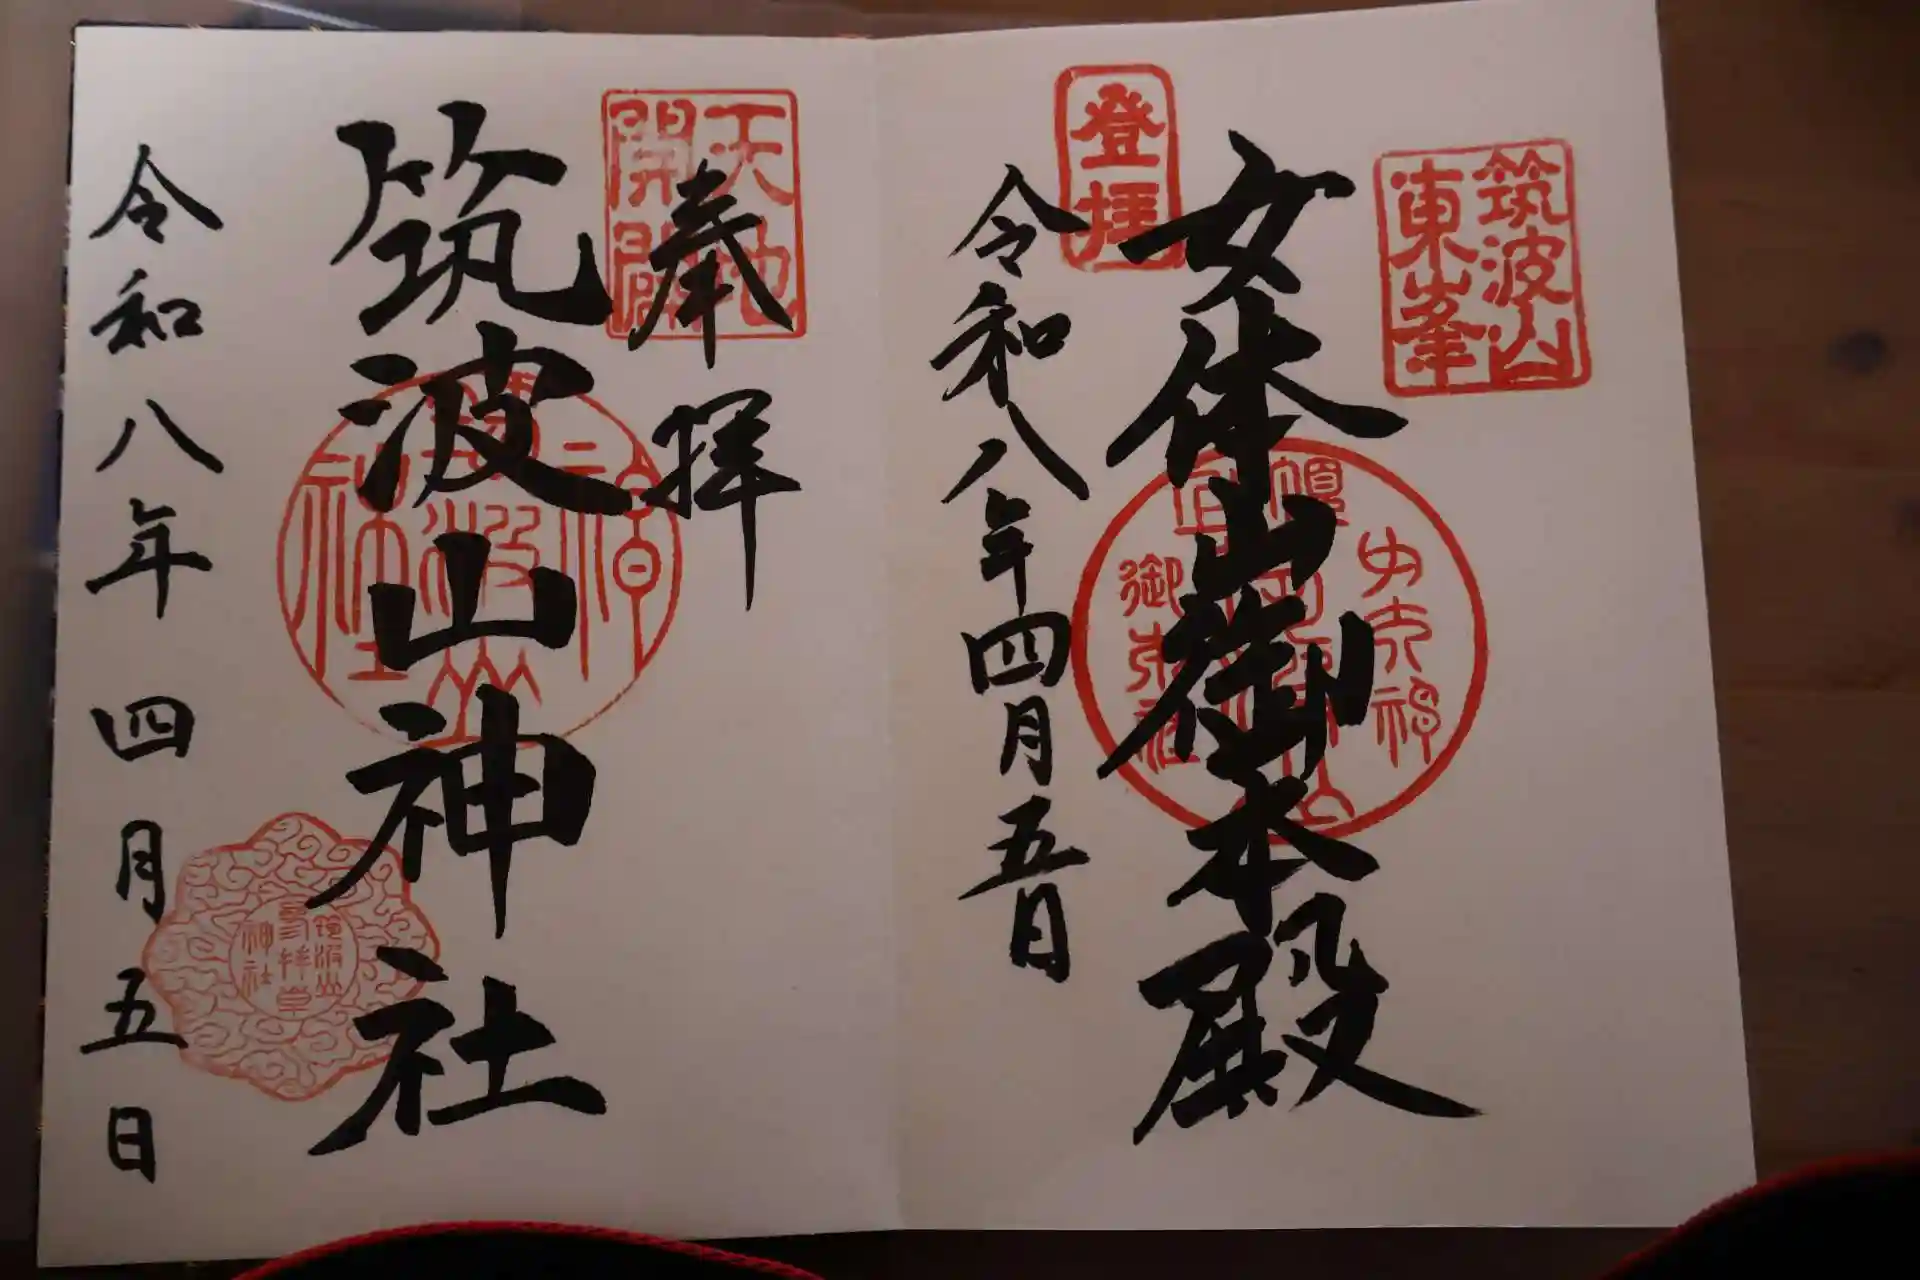 筑波山
東峯
登拝
女体山御本殿
令和八年四月五日
天地
開闢
奉拝
筑波山神社
令和八年四月五日
筑波山
神社